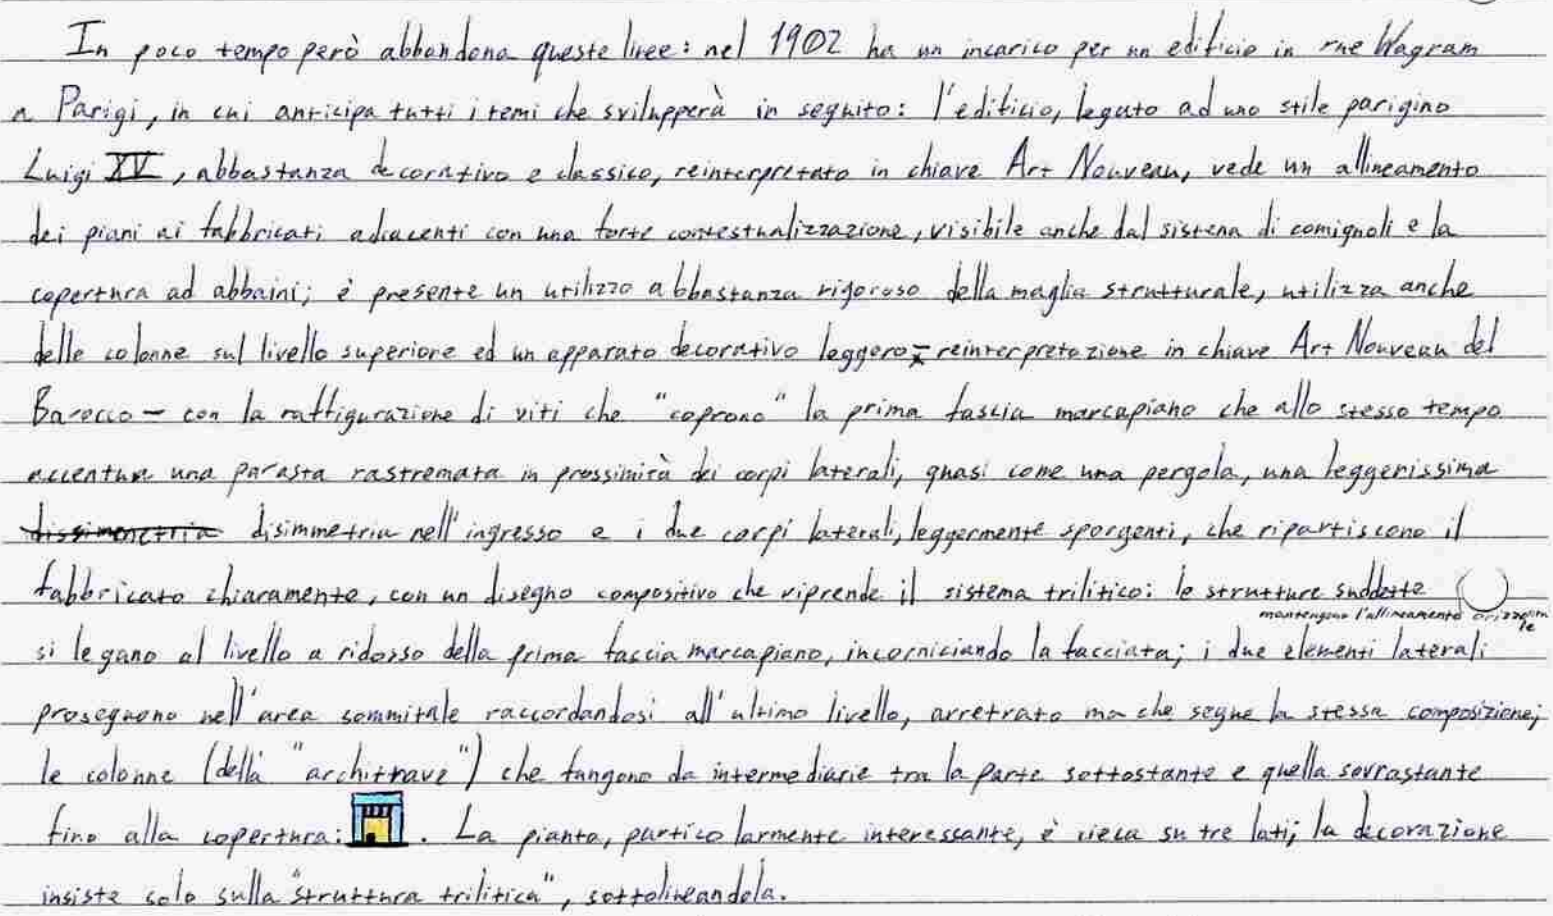 In poco tempo però abbandona queste linee: nel 1902 ha un incarico per un edificio in rue Wagram
a Parigi, in cui anticipa tutti i temi che svilupperà in seguito: l'edificio, legato ad uno stile parigino
Luigi XV, abbastanza decorativo e classico, reinterpretato in chiave Art Nouveau, vede un allineamento
dei piani ai fabbricati adiacenti con una forte contestualizzazione, visibile anche dal sistema di comignoli e la
copertura ad abbaini; è presente un utilizzo abbastanza rigoroso della maglia strutturale, utilizza anche
delle colonne sul livello superiore ed un apparato decorativo leggero - reinterpretazione in chiave Art Nouveau del
Barocco - con la raffigurazione di viti che "coprono" la prima fascia marcapiano che allo stesso tempo
accentua una parasta rastremata in prossimità dei corpi laterali, quasi come una pergola, una leggerissima
dissimmetria disimmetria nell'ingresso e i due corpi laterali, leggermente sporgenti, che ripartiscono il
fabbricato chiaramente, con un disegno compositivo che riprende il sistema trilitico: le strutture suddette
mantengono l'allineamento orizzontale
si legano al livello a ridosso della prima fascia marcapiano, incorniciando la facciata; i due elementi laterali
proseguono nell'area sommitale raccordandosi all'ultimo livello, arretrato ma che segue la stessa composizione;
le colonne (della "architrave") che fungono da intermediarie tra la parte sottostante e quella sovrastante
fino alla copertura: . La pianta, particolarmente interessante, è cieca su tre lati; la decorazione
insiste solo sulla "struttura trilitica", sottolineandola.